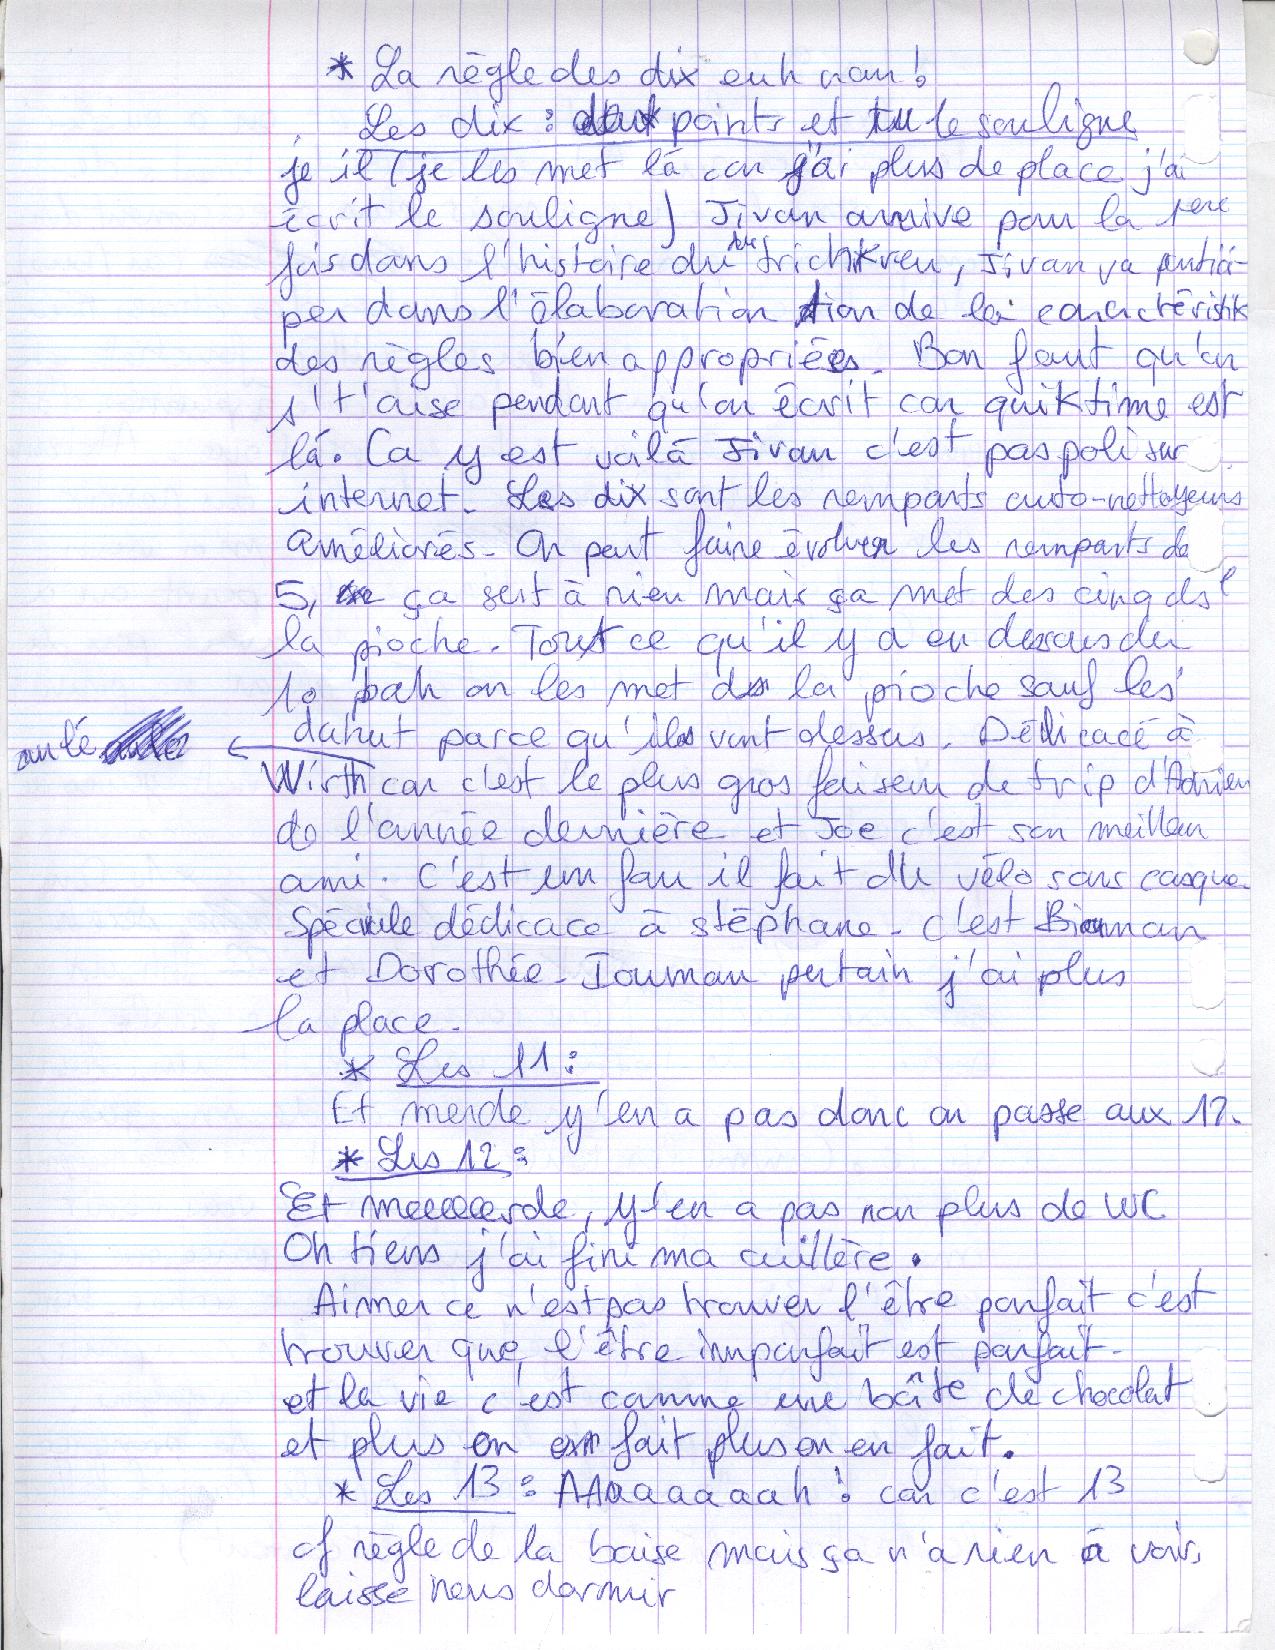 * La règle des dix euh nan !
Les dix : deux points et tu le souligne
je il (je les met là car j'ai plus de place j'ai
écrit le souligne) Jivan arrive pour la 1ere
fois dans l'histoire du trichkreu, Jivan va partici-
per dans l'élaboration tion de la caractéristik
des règles bien appropriées. Bon faut qu'on
s't'aise pendant qu'on écrit car quiktime est
là. Ca y est voilà Jivan c'est pas poli sur
internet. Les dix sont les remparts auto-nettoyeurs
améliorés - On peut faire évoluer les remparts de
5, ça sert à rien mais ça met des cinq ds
la pioche. Tout ce qu'il y a en dessous du
10 bah on les met ds la pioche sauf les
dahut parce qu'ils vont dessus. Dédicacé à
Wirth car c'est le plus gros faiseur de trip d'Adrien
de l'année dernière et Joe c'est son meilleur
ami. C'est un fou il fait du vélo sans casque.
Spéciale dédicace à stéphane - c'est Bioman
et Dorothée - Iouman pertain j'ai plus
la place.
* Les 11 :
Et merde y'en a pas donc on passe aux 12.
* Les 12 :
Et meeeeerde, y'en a pas non plus de WC
Oh tiens j'ai fini ma cuillère.
Aimer ce n'est pas trouver l'être parfait c'est
trouver que l'être imparfait est parfait -
et la vie c'est comme une boîte de chocolat
et plus on en fait plus on en fait.
* Les 13 : AAaaaaaah ! car c'est 13
cf règle de la baise mais ça n'a rien à voir,
laisse nous dormir